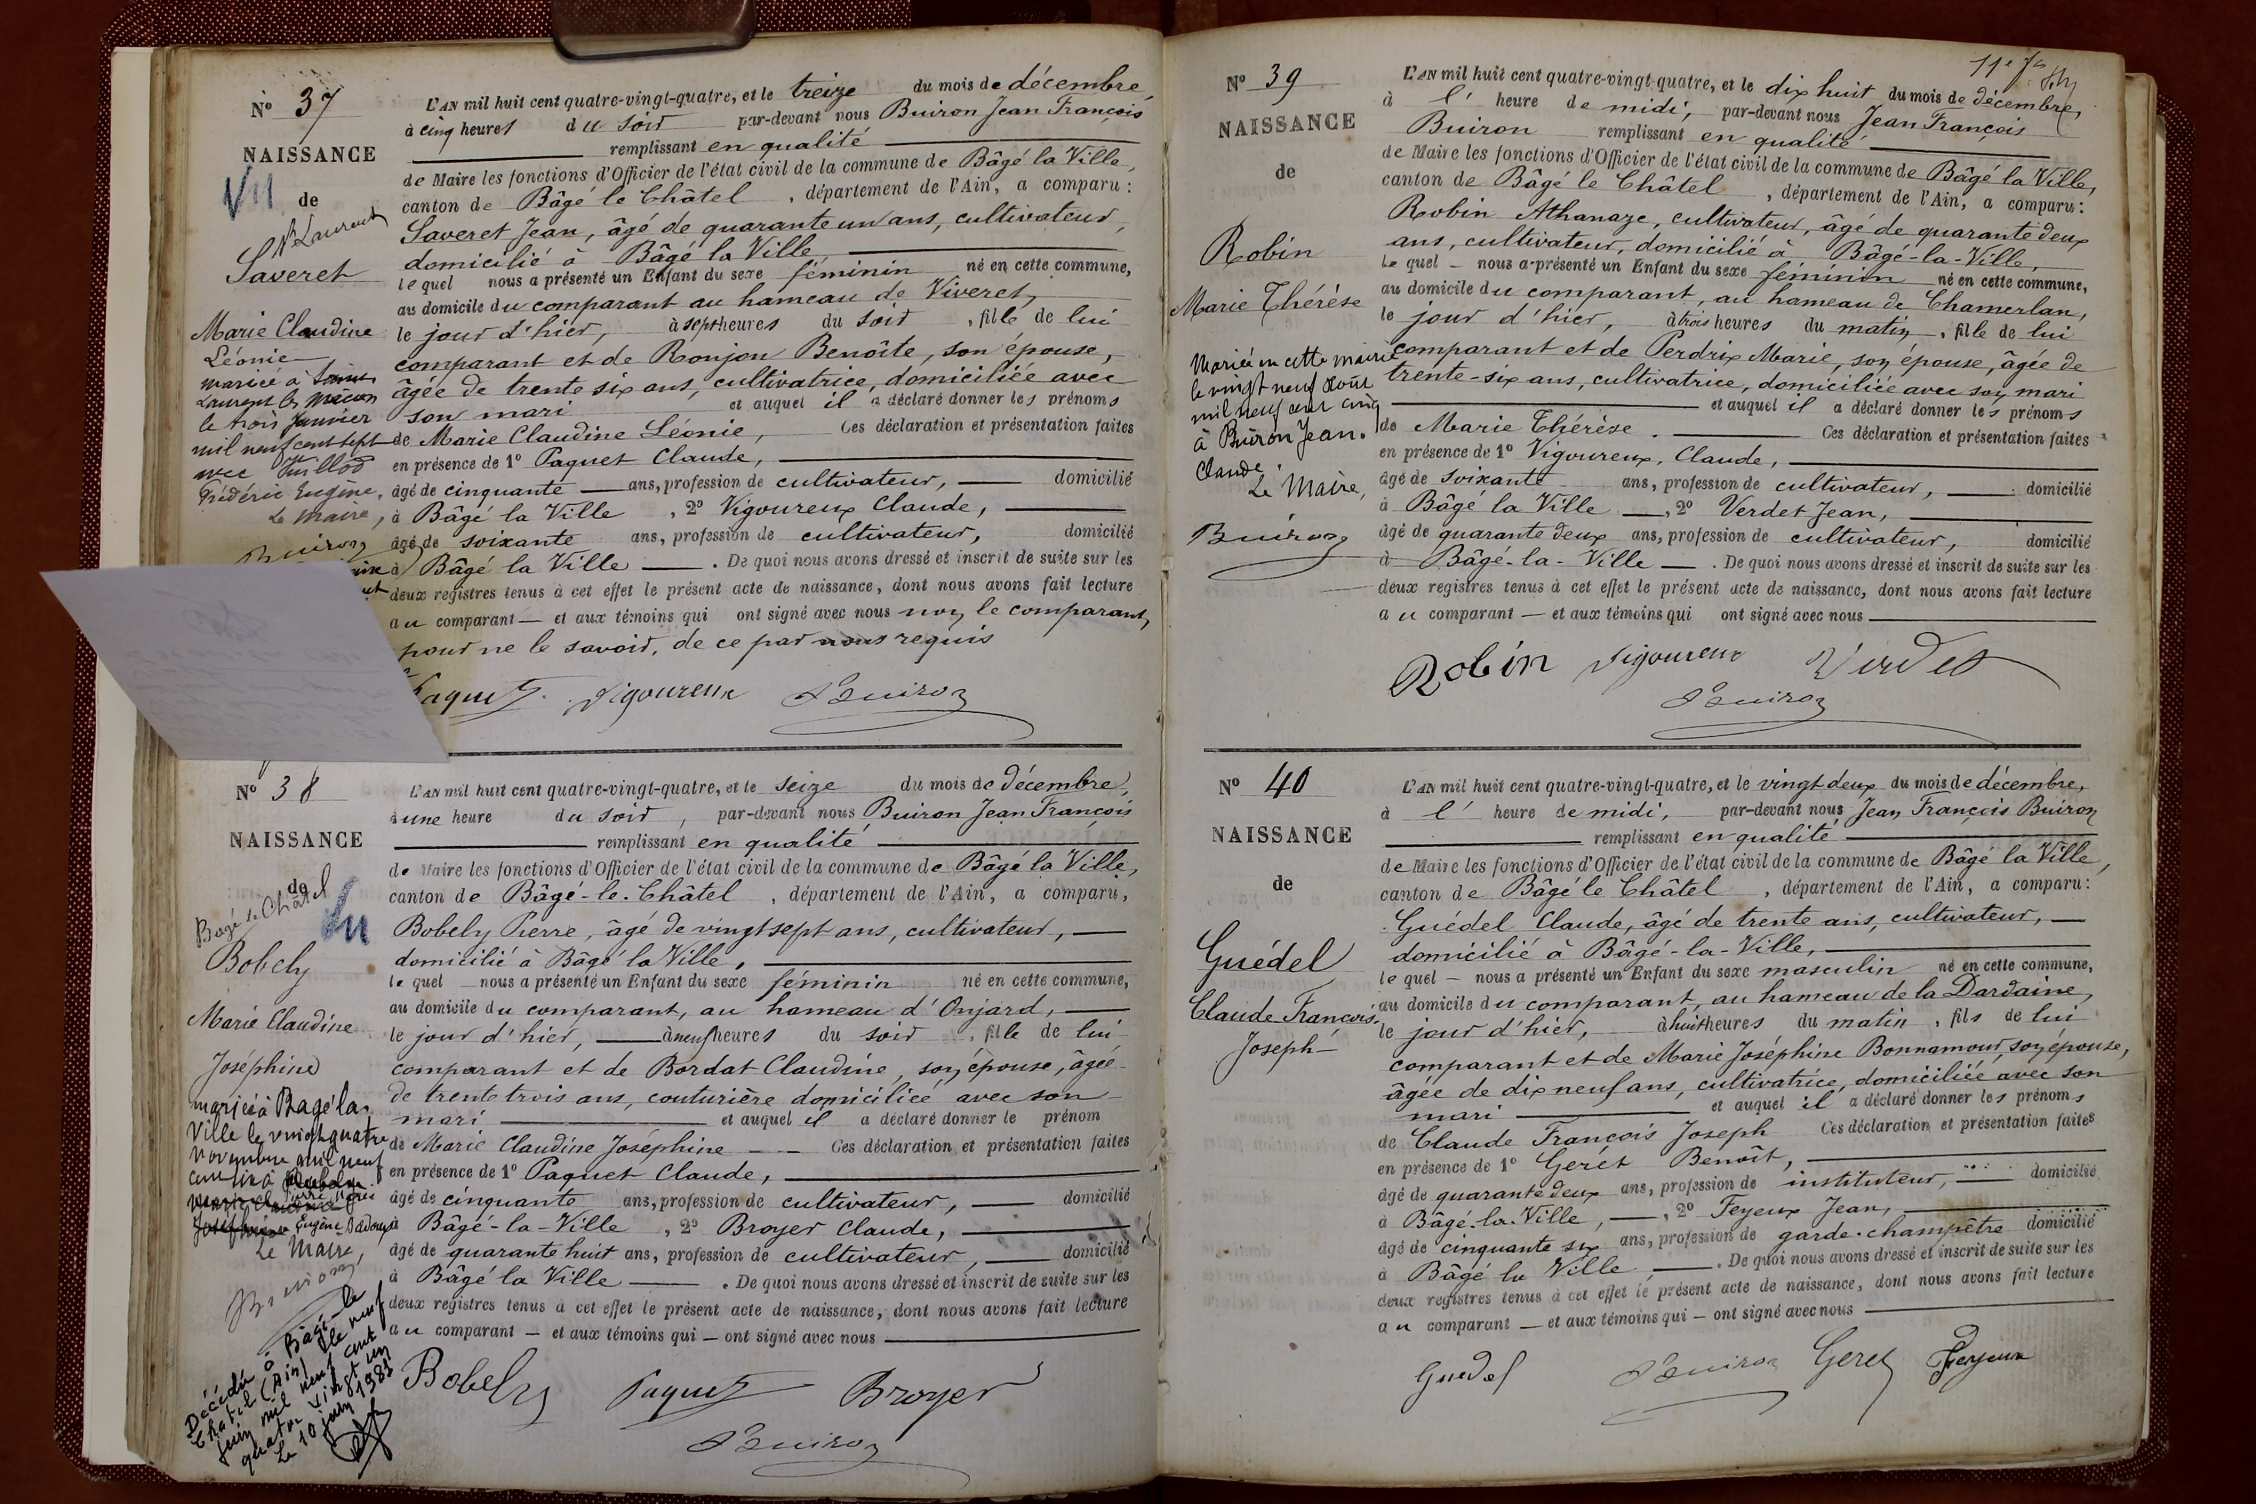 11e
Nº 37
NAISSANCE
de
St Laurent
Saveret
Marie Claudine
Léonie
mariée à Saint
Laurent lès Mâcon
le trois Janvier
mil neuf cent sept
avec
Frédéric Eugène,
Le Maire,
Buiron
L'AN mil huit cent quatre-vingt-quatre, et le treize du mois de décembre,
à cinq heures du soir par-devant nous Buiron Jean François
remplissant en qualité
de Maire les fonctions d'Officier de l'état civil de la commune de Bâgé la Ville,
canton de Bâgé le Châtel, département de l'Ain, a comparu :
Saveret Jean, âgé de quarante un ans, cultivateur,
domicilié à Bâgé la Ville,
lequel nous a présenté un Enfant du sexe féminin né en cette commune,
au domicile du comparant au hameau de Viveret,
le jour d'hier, à sept heures du soir, fille de lui
comparant et de Ronjon Benôite, son épouse,
âgée de trente six ans, cultivatrice, domiciliée avec
son mari et auquel il a déclaré donner les prénoms
de Marie Claudine Léonie, Ces déclaration et présentation faites
en présence de 1º Paquet Claude,
âgé de cinquante ans, profession de cultivateur, domicilié
à Bâgé la Ville, 2º Vigoureux Claude,
âgé de soixante ans, profession de cultivateur, domicilié
à Bâgé la Ville. De quoi nous avons dressé et inscrit de suite sur les
deux registres tenus à cet effet le présent acte de naissance, dont nous avons fait lecture
au comparant et aux témoins qui ont signé avec nous non le comparant,
pour ne le savoir, de ce par nous requis
Paquet Vigoureux Buiron
Nº 38
NAISSANCE
de
Bâgé le Châtel
Bobely
Marie Claudine
Joséphine
mariée à Bagé la
Ville le vingt quatre
novembre mil neuf
cent six à
Pierre Marie
Eugène
Le Maire,
Buiron
Décédée à Bâgé-le
Chatel (Ain) le neuf
juin mil neuf cent
quatre vingt un
Le 10 juin 1981
L'AN mil huit cent quatre-vingt-quatre, et le seize du mois de décembre,
à une heure du soir, par-devant nous Buiron Jean François
remplissant en qualité
de Maire les fonctions d'Officier de l'état civil de la commune de Bâgé la Ville,
canton de Bâgé-le-Châtel, département de l'Ain, a comparu,
Bobely Pierre, âgé de vingt sept ans, cultivateur,
domicilié à Bâgé la Ville,
lequel nous a présenté un Enfant du sexe féminin né en cette commune,
au domicile du comparant, au hameau d'Onjard,
le jour d'hier, à neuf heures du soir, fille de lui
comparant et de Bordat Claudine, son épouse, âgée
de trente trois ans, couturière domiciliée avec son
mari et auquel il a déclaré donner le prénom
de Marie Claudine Joséphine Ces déclaration et présentation faites
en présence de 1º Paquet Claude,
âgé de cinquante ans, profession de cultivateur, domicilié
à Bâgé-la-Ville, 2º Broyer Claude,
âgé de quarante huit ans, profession de cultivateur, domicilié
à Bâgé la Ville. De quoi nous avons dressé et inscrit de suite sur les
deux registres tenus à cet effet le présent acte de naissance, dont nous avons fait lecture
au comparant et aux témoins qui ont signé avec nous
Bobely Paquet Broyer
Buiron
Nº 39
NAISSANCE
de
Robin
Marie Thérèse
Mariée en cette mairie
le vingt neuf août
mil neuf cent cinq
à Buiron Jean
Claude.
Le Maire,
Buiron
L'AN mil huit cent quatre-vingt-quatre, et le dix huit du mois de décembre,
à l' heure de midi, par-devant nous Jean François
Buiron remplissant en qualité
de Maire les fonctions d'Officier de l'état civil de la commune de Bâgé la Ville,
canton de Bâgé le Châtel, département de l'Ain, a comparu :
Robin Athanaze, cultivateur, âgé de quarante deux
ans, cultivateur, domicilié à Bâgé-la-Ville,
lequel nous a présenté un Enfant du sexe féminin né en cette commune,
au domicile du comparant, au hameau de Chamerlan,
le jour d'hier, à trois heures du matin, fille de lui
comparant et de Perdrix Marie, son épouse, âgée de
trente-six ans, cultivatrice, domiciliée avec son mari
et auquel il a déclaré donner les prénoms
de Marie Thérèse. Ces déclaration et présentation faites
en présence de 1º Vigoureux, Claude,
âgé de soixante ans, profession de cultivateur, domicilié
à Bâgé la Ville, 2º Verdet Jean,
âgé de quarante deux ans, profession de cultivateur, domicilié
à Bâgé-la-Ville. De quoi nous avons dressé et inscrit de suite sur les
deux registres tenus à cet effet le présent acte de naissance, dont nous avons fait lecture
au comparant et aux témoins qui ont signé avec nous
Robin Vigoureux Verdet
Buiron
Nº 40
NAISSANCE
de
Guédel
Claude François
Joseph
L'AN mil huit cent quatre-vingt-quatre, et le vingt deux du mois de décembre,
à l' heure de midi, par-devant nous Jean François Buiron
remplissant en qualité
de Maire les fonctions d'Officier de l'état civil de la commune de Bâgé la Ville,
canton de Bâgé le Châtel, département de l'Ain, a comparu :
Guédel Claude, âgé de trente ans, cultivateur,
domicilié à Bâgé-la-Ville,
lequel nous a présenté un Enfant du sexe masculin né en cette commune,
au domicile du comparant, au hameau de la Dardaine,
le jour d'hier, à huit heures du matin, fils de lui
comparant et de Marie Joséphine Bonnamour, son épouse,
âgée de dix neuf ans, cultivatrice, domiciliée avec son
mari et auquel il a déclaré donner les prénoms
de Claude François Joseph Ces déclaration et présentation faites
en présence de 1º Gerét Benoît,
âgé de quarante deux ans, profession de instituteur, domicilié
à Bâgé-la-Ville, 2º Feyeux Jean,
âgé de cinquante six ans, profession de garde-champêtre domicilié
à Bâgé la Ville. De quoi nous avons dressé et inscrit de suite sur les
deux registres tenus à cet effet le présent acte de naissance, dont nous avons fait lecture
au comparant et aux témoins qui ont signé avec nous
Guédel Buiron Geret Feyeux